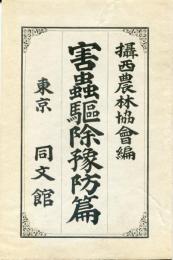 攝西農林協會編
害蟲驅除豫防篇
東京 同文館